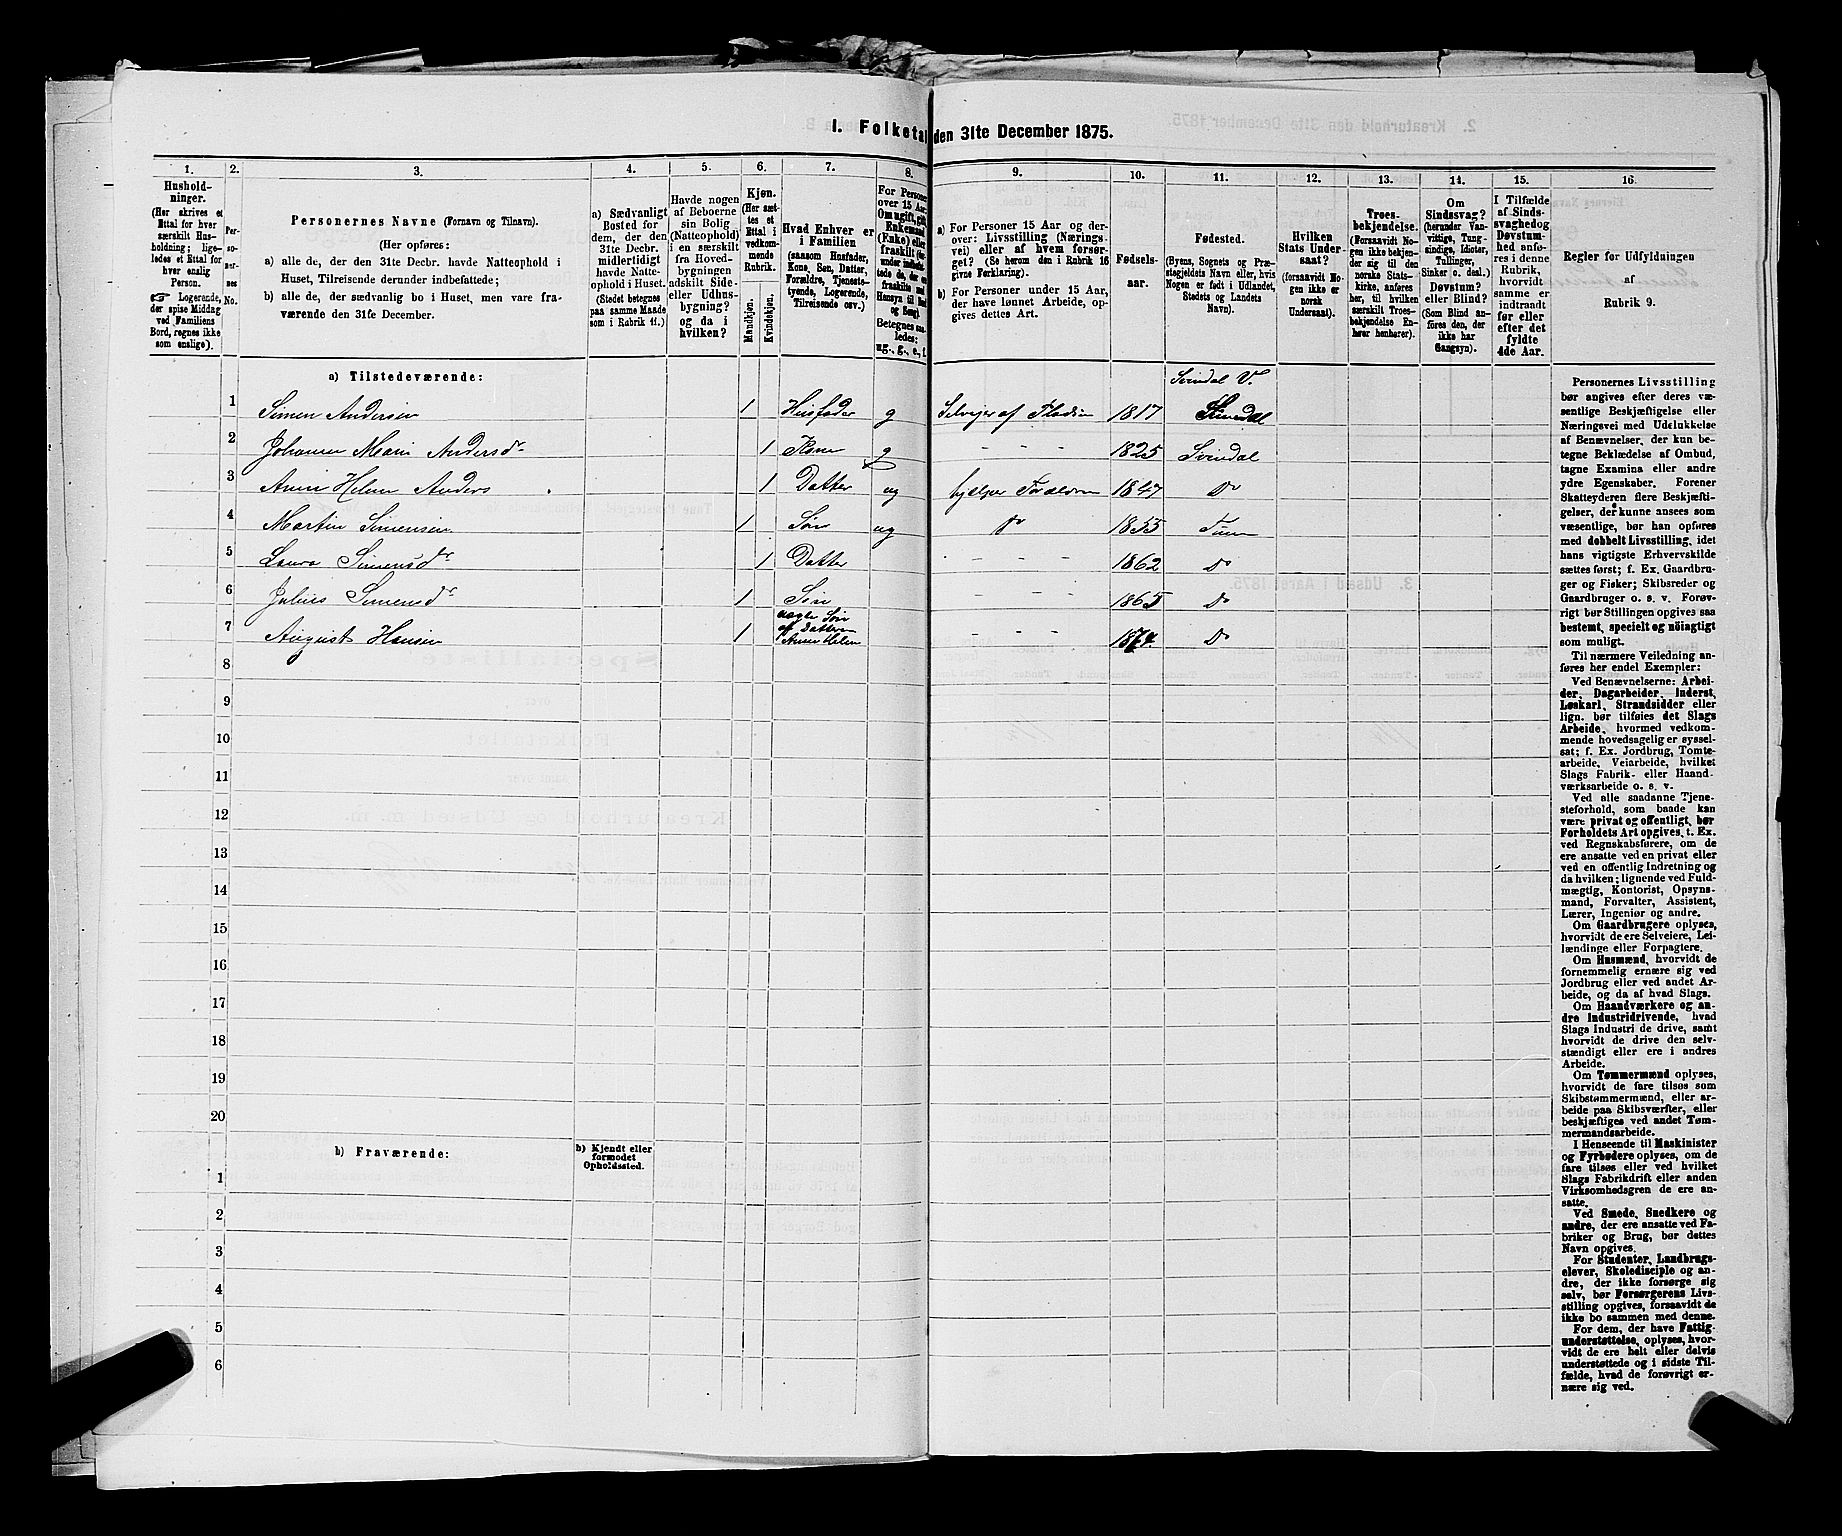 1. Folketal den 31te December 1875.
1. 2. 3. 4. 5. 6. 7. 8. 9. 10. 11. 12. 13. 14. 15. 16.
Hushold-
ninger.
(Her skrives et
Ettal for hver
særskilt Hus-
holdning; lige-
ledes et Ettal for
hver enslig
Person.
☞ Logerende,
der spise Middag
ved Familiens
Bord, regnes ikke
som enslige).
Per-
so-
ner-
nes
No.
Personernes Navne (Fornavn og Tilnavn).
(Her opføres:
a) alle de, der den 31te Decbr. havde Natteophold i
Huset, Tilreisende derunder indbefattede;
b) alle de, der sædvanlig bo i Huset, men vare fra-
værende den 31te December.
a) Sædvanligt
Bosted for
dem, der den
31te Decbr.
midlertidigt
havde Natte-
ophold i Huset.
(Stedet betegnes
paa samme Maade
som i Rubrik 11.)
Havde nogen
af Beboerne
sin Bolig
(Natteophold)
i en særskilt
fra Hoved-
bygningen
adskilt Side-
eller Udhus-
bygning?
og da i
hvilken?
Kjøn.
(Her sæt-
tes et
Ettal i
vedkom-
mende
Rubrik.
Mandkjøn.
Kvindekjøn.
Hvad Enhver er
i Familien
(saasom Husfader,
Kone, Søn, Datter,
Forældre, Tjeneste-
tyende, Logerende,
Tilreisende osv.)
For Personer
over 15 Aar:
Om ugift, gift,
Enkemand
(Enke) eller
fraskilt
Betegnes saa-
ledes:
ug., g., e., f.
a) For Personer 15 Aar og der-
over: Livsstilling (Nærings-
vei) eller af hvem forsør-
get? (Se herom den i Rubrik 16
givne Forklaring).
b) For Personer under 15 Aar,
der have lønnet Arbeide, op-
gives dettes Art.
Fødsels-
aar.
Fødested.
(Byens, Sognets og Præ-
stegjeldets Navn eller, hvis
Nogen er født i Udlandet,
Stedets og Landets
Navn).
Hvilken
Stats Under-
saat?
(forsaavidt No-
gen ikke er
norsk
Undersaat).
Troes-
bekjendelse.
(Forsaavidt No-
gen ikke bekjen-
der sig til den
norske Stats-
kirke, anføres
her, til hvilken
særskilt Troes-
bekjendelse En-
hver henhører).
Om
Sindssvag?
(herunder Van-
vittige, Tung-
sindige, Idioter,
Tullinger,
Sinker o. desl.)
Døvstum?
eller Blind?
(Som Blind an-
føres den, der
ikke har
Gangsyn).
I Tilfælde
af Sinds-
svaghed og
Døvstum-
hed anfø-
res i denne
Rubrik,
hvorvidt
samme er
indtraadt
før eller
efter det
fyldte
4de Aar.
Regler for Udfyldningen
af
Rubrik 9.
a) Tilstedeværende:
Svindal V.
1 Simen Andersen 1 Husfader g Selvejer af Pladsen 1817 Svindal
2 Johanne Marie Andersdr 1 Kone g - - - 1825 Svindal
3 Anne Helene Anders 1 Datter ug hjelper Foreldrene 1847 Do
4 Martin Simensen 1 Søn ug Do 1855 Tune
5 Laura Simensdr 1 Datter 1862 Do
6 Julius Simensdr 1 Søn - - - 1865 Do
7 August Hansen 1 uægte Søn af Datteren Anne Helene - - - 1874. Do
8
9
10
11
12
13
14
15
16
17
18
19
20
b) Fraværende:
b) Kjendt eller
formodet
Opholdssted.
1
2
3
4
5
6
Personernes Livsstilling
bør angives efter deres væ-
sentlige Beskjæftigelse eller
Næringsvei med Udelukkelse
af Benævnelser, der kun be-
tegne Beklædelse af Ombud,
tagne Examina eller andre
ydre Egenskaber. Forener
Skatteyderen flere Beskjæfti-
gelser, der kunne ansees som
væsentlige, bør han opføres
med dobbelt Livsstilling, idet
hans vigtigste Erhvervskilde
sættes først; f. Ex. Gaardbru-
ger og Fisker; Skibsreder og
Gaardbruger o. s. v. Forøv-
rigt bør Stillingen opgives saa
bestemt, specielt og nöiagtigt
som muligt.
Til nærmere Veiledning an-
føres her endel Exempler:
Ved Benævnelserne: Arbei-
der, Dagarbeider, Inderst,
Løskarl, Strandsidder eller
lign. bør tilføies det Slags
Arbeide, hvormed vedkom-
mende hovedsagelig er syssel-
sat; f. Ex. Jordbrug, Tomte-
arbeide, Veiarbeide, hvilket
Slags Fabrik- eller Haand-
værksarbeide o. s. v.
Ved alle saadanne Tjene-
steforhold, som baade kan
være privat og offentligt, bør
Forholdets Art opgives, t. Ex.
ved Regnskabsførere, om de
ere ansatte ved en privat eller
ved en offentlig Indretning og
da hvilken; lignende ved Fuld-
mægtig, Kontorist, Opsyns-
mand, Forvalter, Assistent,
Lærer, Ingeniør og andre.
Om Gaardbrugere oplyses,
hvorvidt de ere Selveiere, Lei-
lændinge eller Forpagtere.
Om Husmænd, hvorvidt de
fornemmelig ernære sig ved
Jordbrug eller ved andet Ar-
beide, og da af hvad Slags.
Om Haandværkere og an-
dre Industridrivende, hvad
Slags Industri de drive, samt
hvorvidt de drive den selv-
stændigt eller ere i andres
Arbeide.
Om Tømmermænd oplyses,
hvorvidt de fare tilsøs som
Skibstømmermænd, eller ar-
beide paa Skibsværfter, eller
beskjæftiges ved andet Tøm-
mermandsarbeide.
I Henseende til Maskinister
og Fyrbødere oplyses, om de
fare tilsøs eller ved hvilket
Slags Fabrikdrift eller anden
Virksomhedsgren de ere an-
satte.
Ved Smede, Snedkere og
andre, der ere ansatte ved Fa-
briker og Brug, bør dettes
Navn opgives.
For Studenter, Landbrugs-
elever, Skoledisciple og an-
dre, der ikke forsørge sig
selv, bør Forsørgerens Livs-
stilling opgives, forsaavidt de
ikke bo sammen med denne.
For dem, der have Fattig-
understøttelse, oplyses, hvor-
vidt de ere helt eller delvis
understøttede og i sidste Til-
fælde, hvad de forøvrigt er-
nære sig ved.